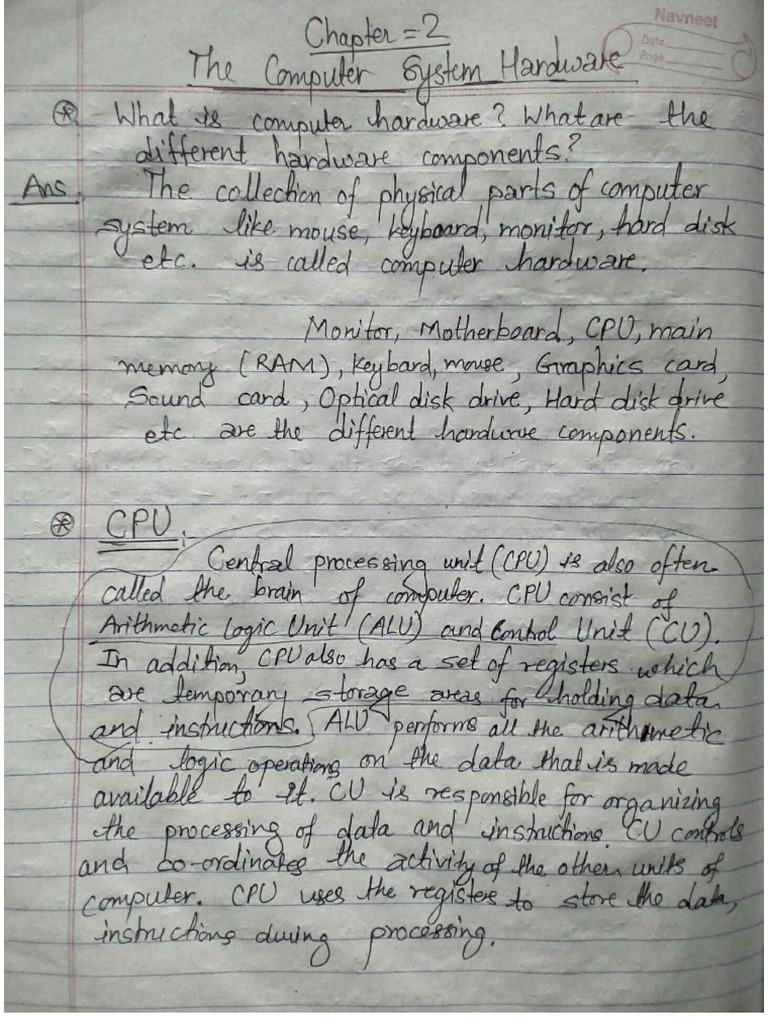 Navneet
Date
Page
Chapter = 2
The Computer System Hardware
What is computer hardware? What are the
different hardware components?
Ans. The collection of physical parts of computer
system like mouse, keyboard, monitor, hard disk
etc. is called computer hardware.
Monitor, Motherboard, CPU, main
memory (RAM), keybard, mouse, Graphics card,
Sound card, Optical disk drive, Hard disk drive
etc are the different hardwrae components.
CPU:
Central processing unit (CPU) is also often
called the brain of computer. CPU consist of
Arithmetic Logic Unit (ALU) and Control Unit (CU).
In addition, CPU also has a set of registers which
are temporary storage areas for holding data
and instructions. ALU performs all the arithmetic
and logic operations on the data that is made
available to it. CU is responsible for organizing
the processing of data and instructions. CU controls
and co-ordinates the activity of the other units of
computer. CPU uses the registers to store the data,
instructions during processing.